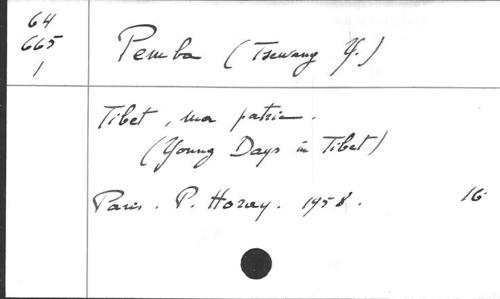 64
665
1
Pemba (Tsewang Y.)
Tibet, ma patrie.
(Young Days in Tibet)
Paris. P. Horay. 1958. 16